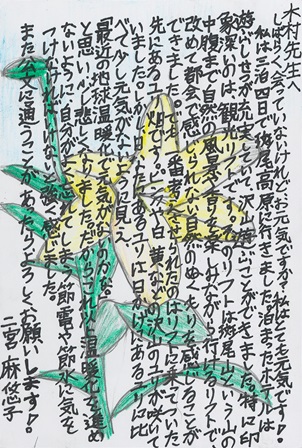 木村先生へ
しばらく会っていないけれどお元気ですか?私はとても元気です!。
私は三泊四日で斑尾高原に行きました。泊まったホテルは
がいしせつが充実していて、沢山遊ぶことができました。特に印
象深いのは、観光リフトです。そのリフトは斑尾山という山の
中腹まで自然の風景や音を楽しみながら行けるリフトで
改めて都会で感じられない自然のぬくもりを感じることが
できました。一番考えさせられたのはリフトに乗ってついた
先にある畑です。そこは白、黄などの沢山のユリが咲いて
いました。しかし日なたにあるユリは日かげにあるユリに比
べて少し元気がないように見え、
「最近の地球温暖化で元気がないのかな。」
と思い、少し悲しくなりました。だからこれ以上温暖化を進め
ないように自分が できてしまう節電や節水に気を
つけなければいけないなと強く感じました。
またお文に通うことがあったらよろしくお願いします!。
二宮 麻悠子